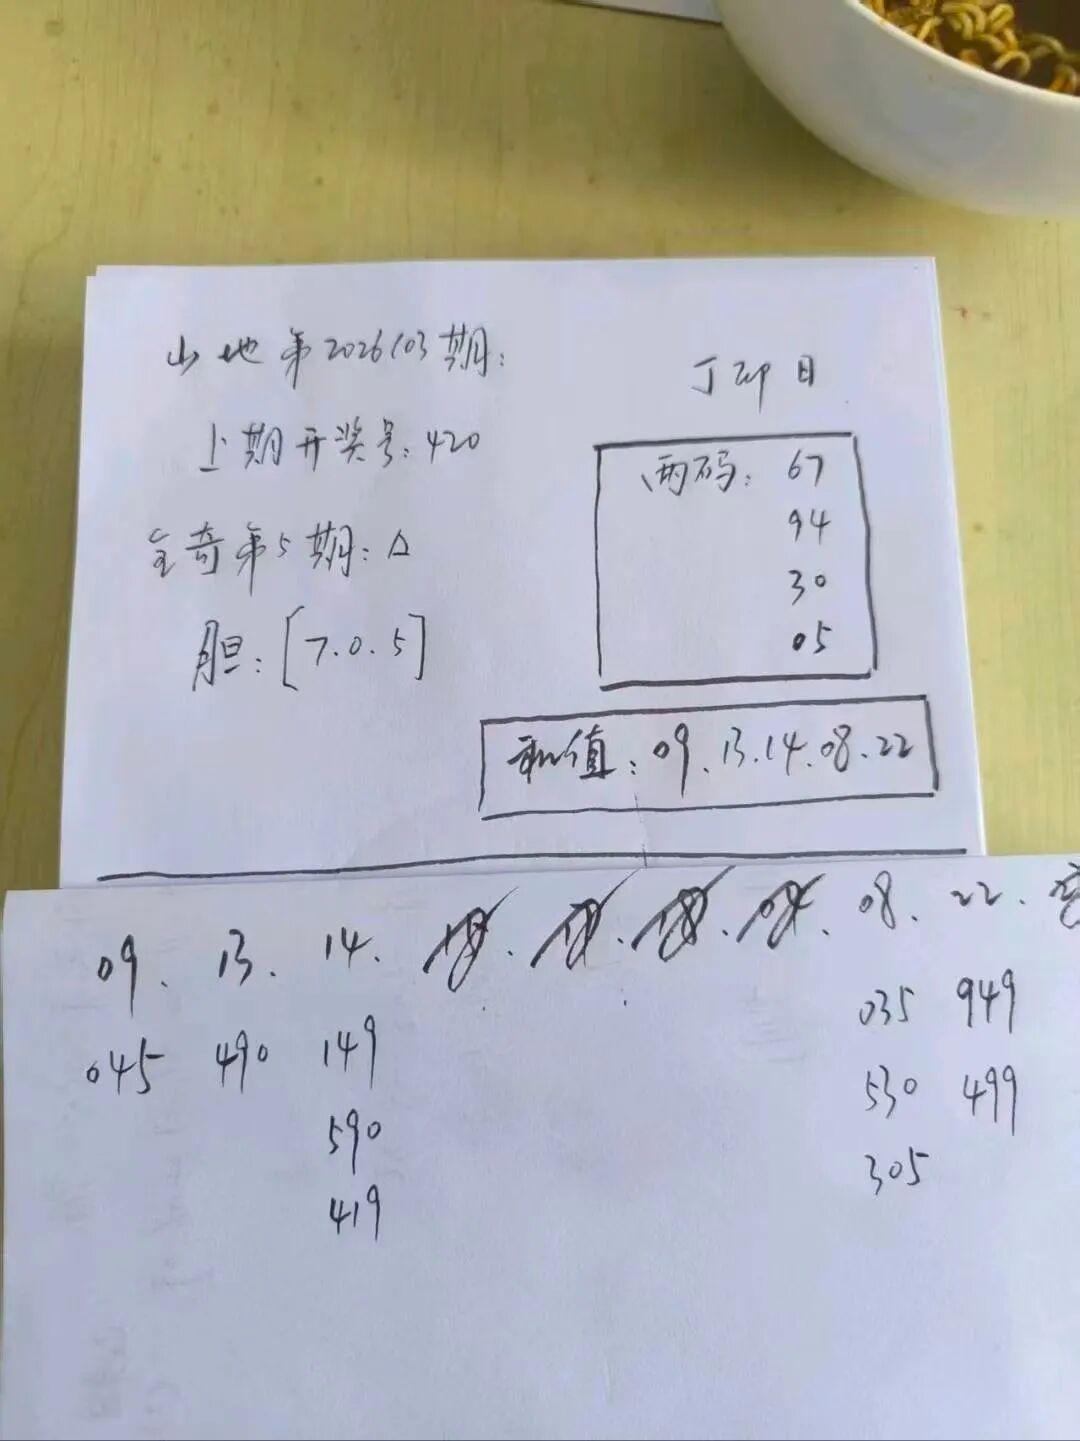 山地第2026103期:
丁卯日
上期开奖号:420
两码: 67
94
30
05
全奇第5期:△
胆:[7.0.5]
和值:09.13.14.08.22
09. 13. 14. 08. 22.
045 490 149 035 949
590 530 499
419 305